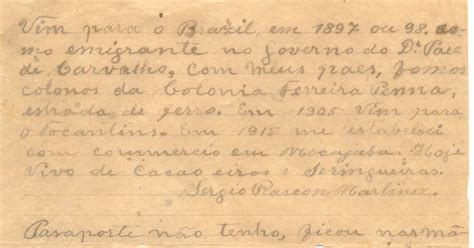 Vim para o Brazil, em 1897 ou 98. co-
mo emigrante no governo do Dr Paez
di Carvalho, com meus paes, fomos
colonos da Colonia Ferreira Penna,
estrada de ferro. Em 1905 Vim para
o Tocantins. Em 1915 me estabeleci
com commercio em Mocajuba. Hoji
Vivo de Cacao eiros e Seringueiras.
Sergio Rascon Martinez.
Pasaporte não tenho, ficou nas mã